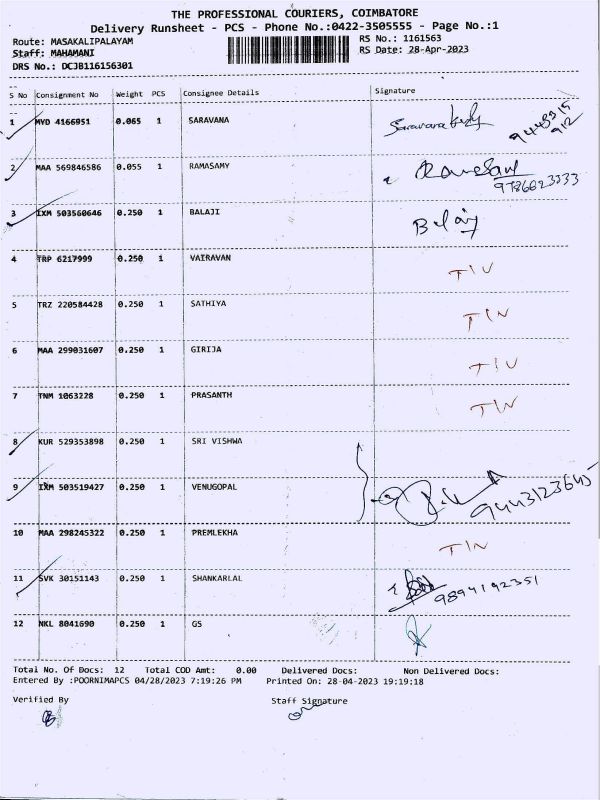 THE PROFESSIONAL COURIERS, COIMBATORE
Delivery Runsheet - PCS - Phone No.:0422-3505555 - Page No.:1
Route: MASAKALIPALAYAM RS No.: 1161563
Staff: MAHAMANI RS Date: 28-Apr-2023
DRS No.: DCJB116156301
S No Consignment No Weight PCS Consignee Details Signature
1 MYD 4166951 0.065 1 SARAVANA
2 MAA 569846586 0.055 1 RAMASAMY
9786023333
3 IXM 503560646 0.250 1 BALAJI Balaji
4 TRP 6217999 0.250 1 VAIRAVAN
5 TRZ 220584428 0.250 1 SATHIYA
6 MAA 299031607 0.250 1 GIRIJA
7 TNM 1063228 0.250 1 PRASANTH
8 KUR 529353898 0.250 1 SRI VISHWA
9 IXM 503519427 0.250 1 VENUGOPAL 9443123645
10 MAA 298245322 0.250 1 PREMLEKHA
11 SVK 30151143 0.250 1 SHANKARLAL 9894192351
12 NKL 8041690 0.250 1 GS
Total No. Of Docs: 12 Total COD Amt: 0.00 Delivered Docs: Non Delivered Docs:
Entered By :POORNIMAPCS 04/28/2023 7:19:26 PM Printed On: 28-04-2023 19:19:18
Verified By Staff Signature